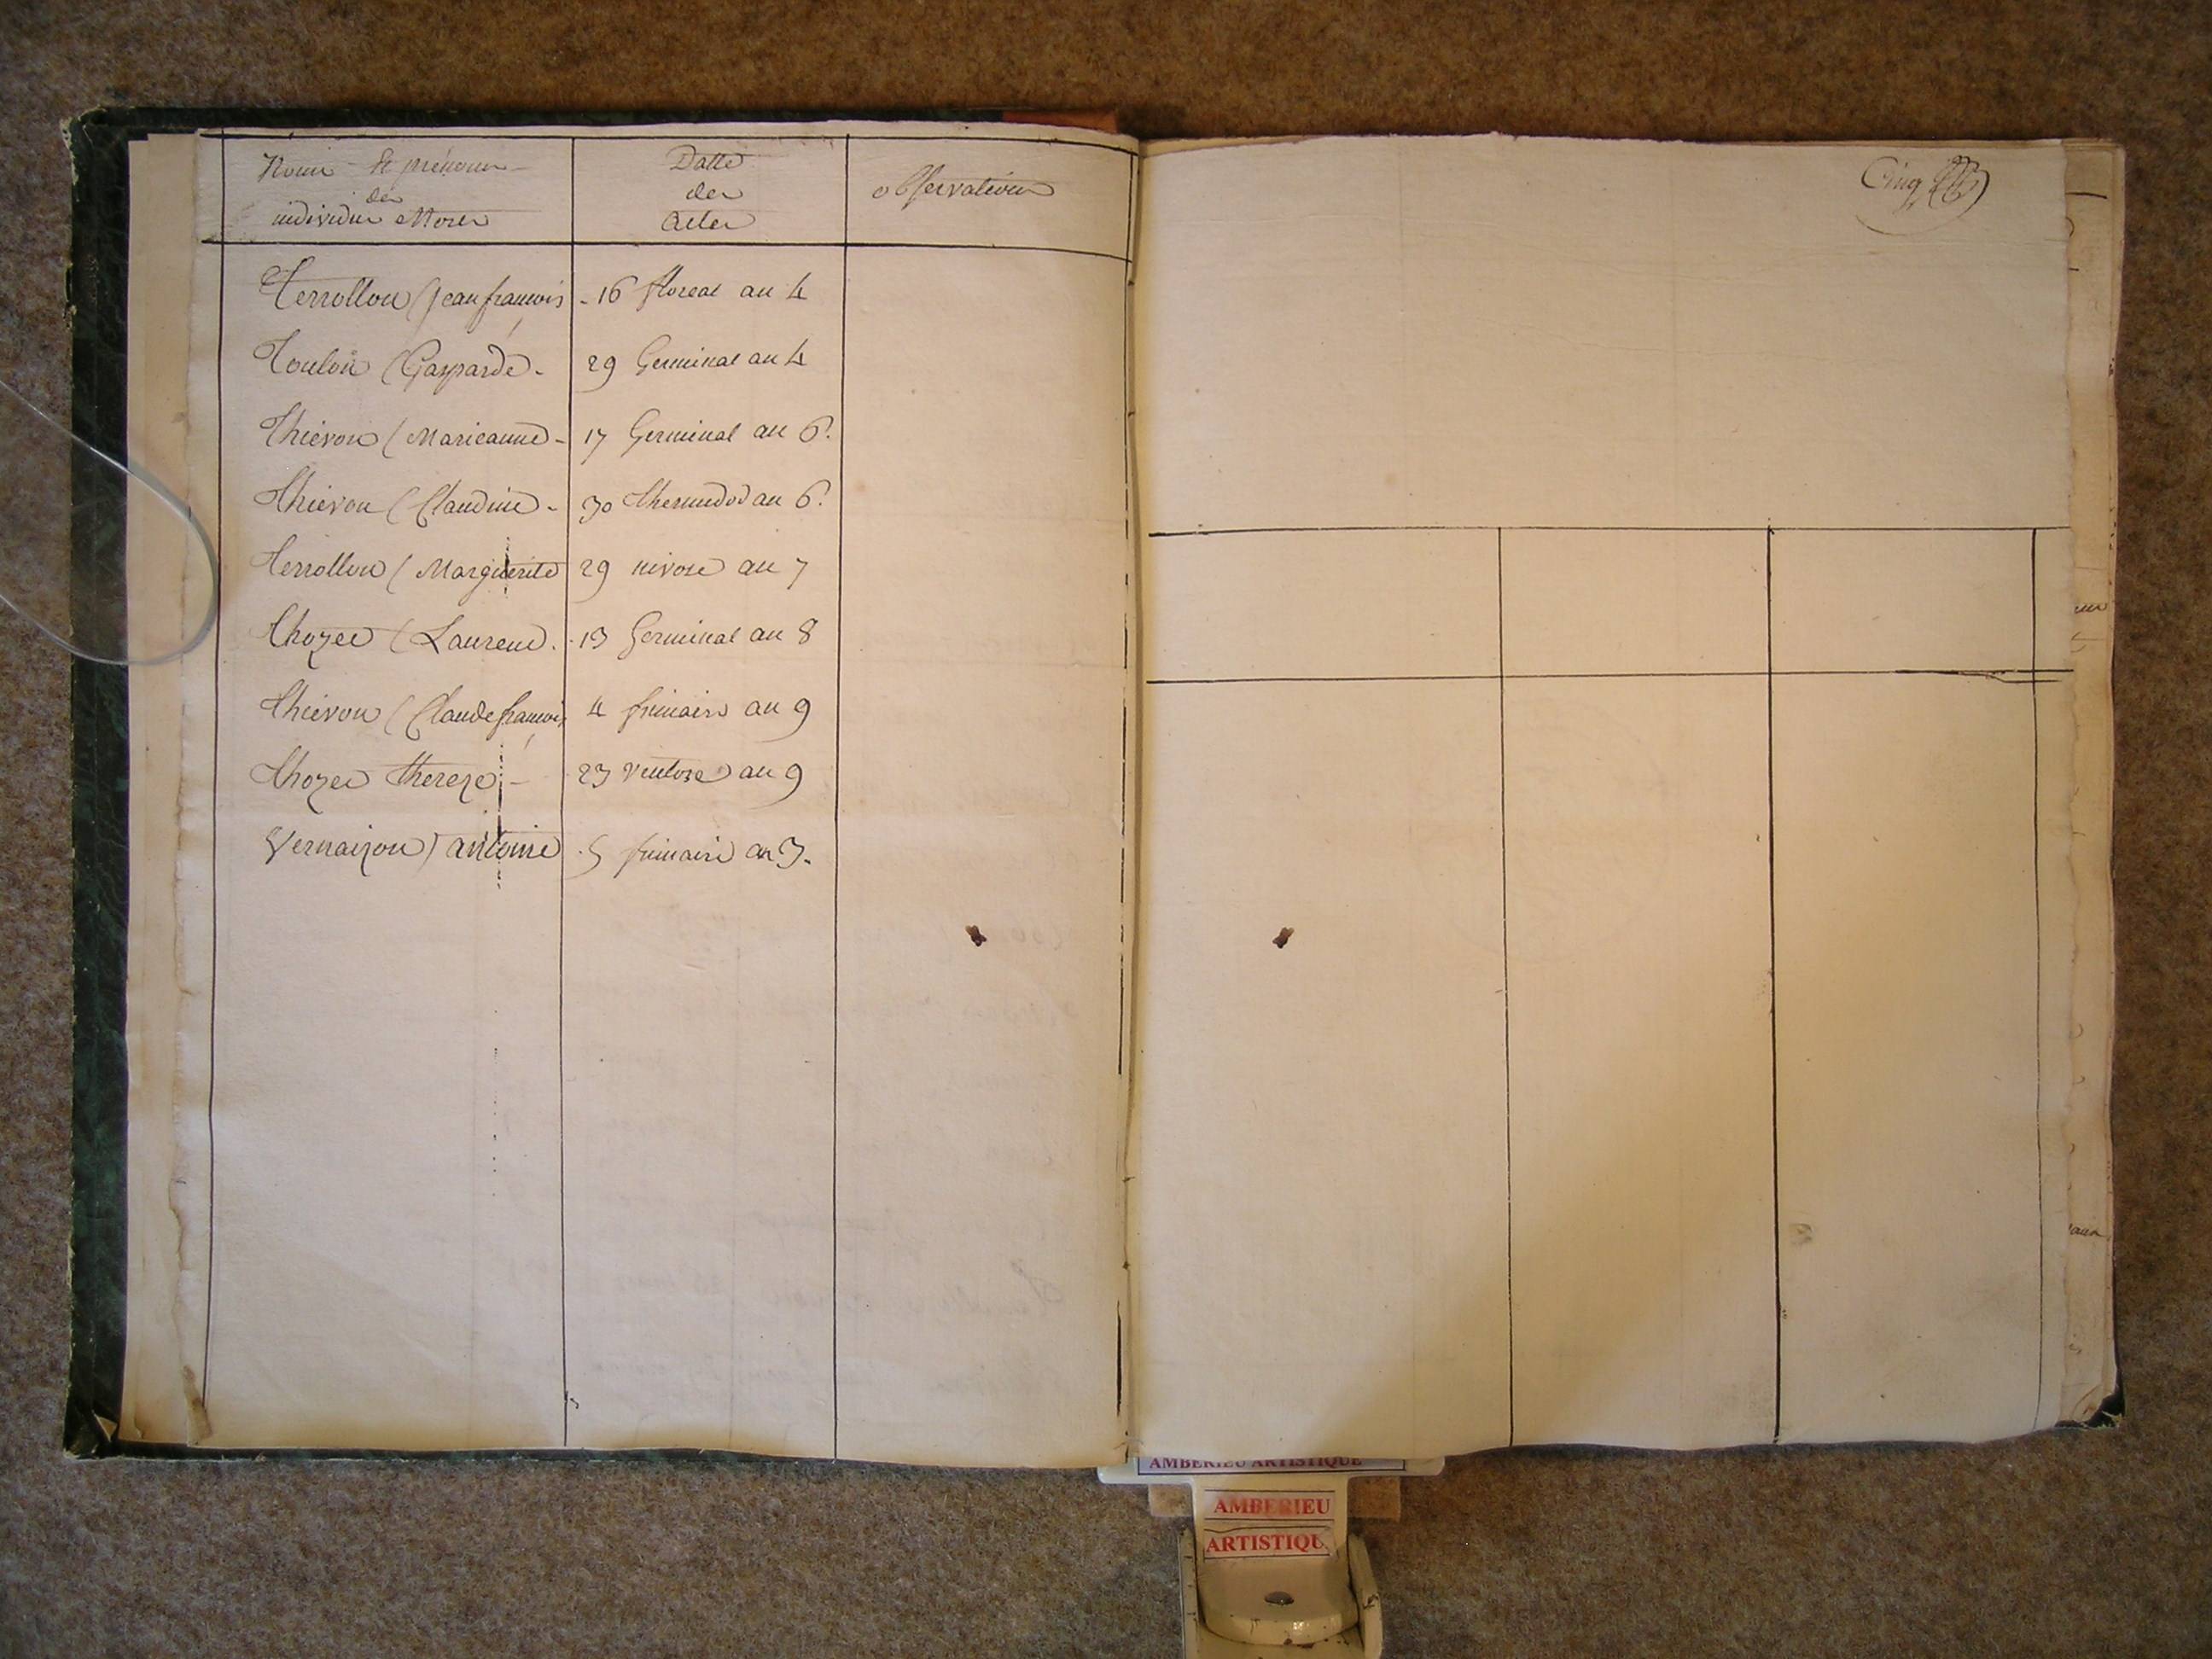 Noms et prénoms
des
individus Morts
Datte
des
Actes
observations
Terrollon (Jean françois - 16 floreal an 4
Toulon (Gasparde - 29 Germinal an 4
Thievon (Marieanne - 17 Germinal an 6.
Thievon (Claudine - 30 thermidor an 6.
Terrollon (Marguerite 29 nivose an 7
Thozee (Laurent - 13 Germinal an 8
Thievon (Claude françois 4 frimaire an 9
Thozee thereze - 23 ventose an 9
Vernaizon) antoine - 5 frimaire an 3.
Cinq
AMBERIEU ARTISTIQUE
AMBERIEU
ARTISTIQU